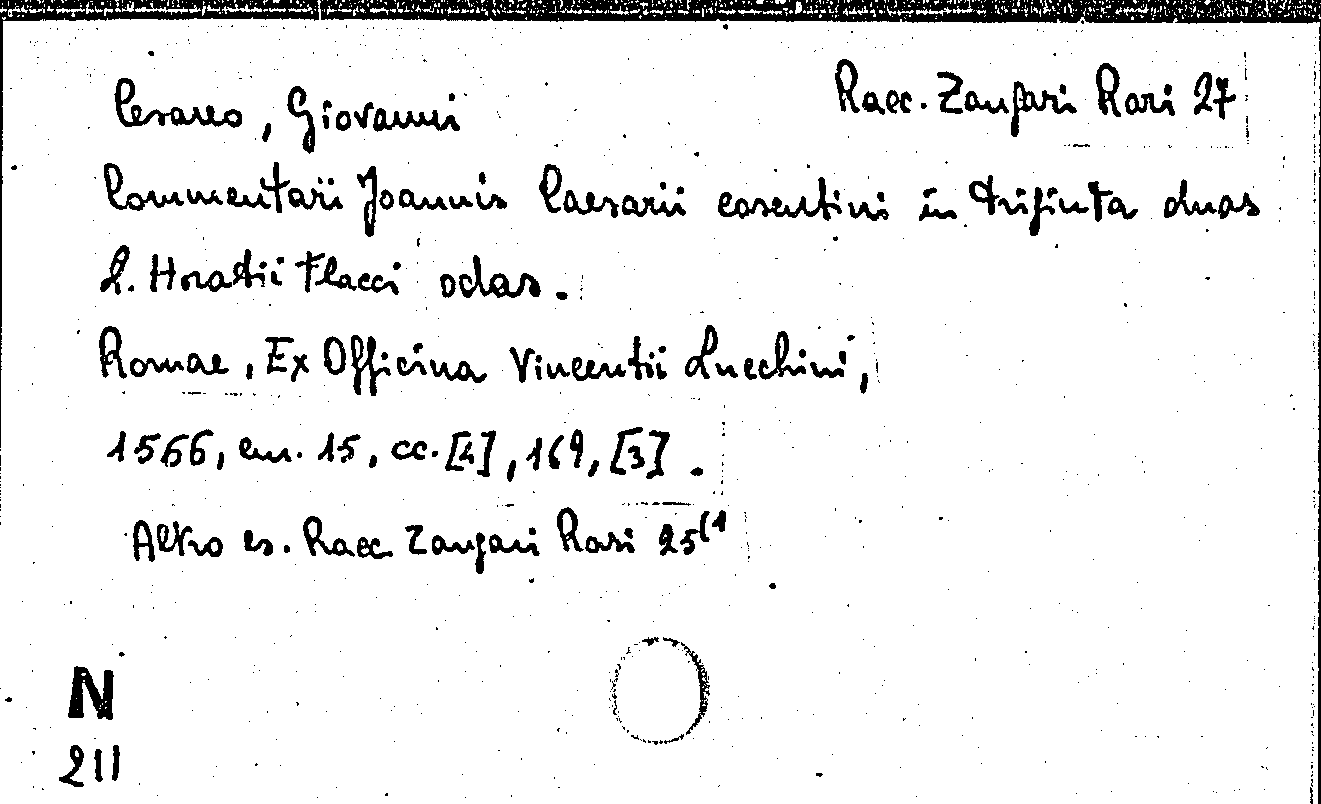 Cesareo, Giovanni
Racc. Zangari Rari 27
Commentarii Joannis Caesarii cosentini in triginta duas
Q. Horatii Flacci odas.
Romae, Ex Officina Vincentii Luchini,
1566, cm. 15, cc. [4], 169, [3].
Altro es. Racc. Zangari Rari 25(1
N
211